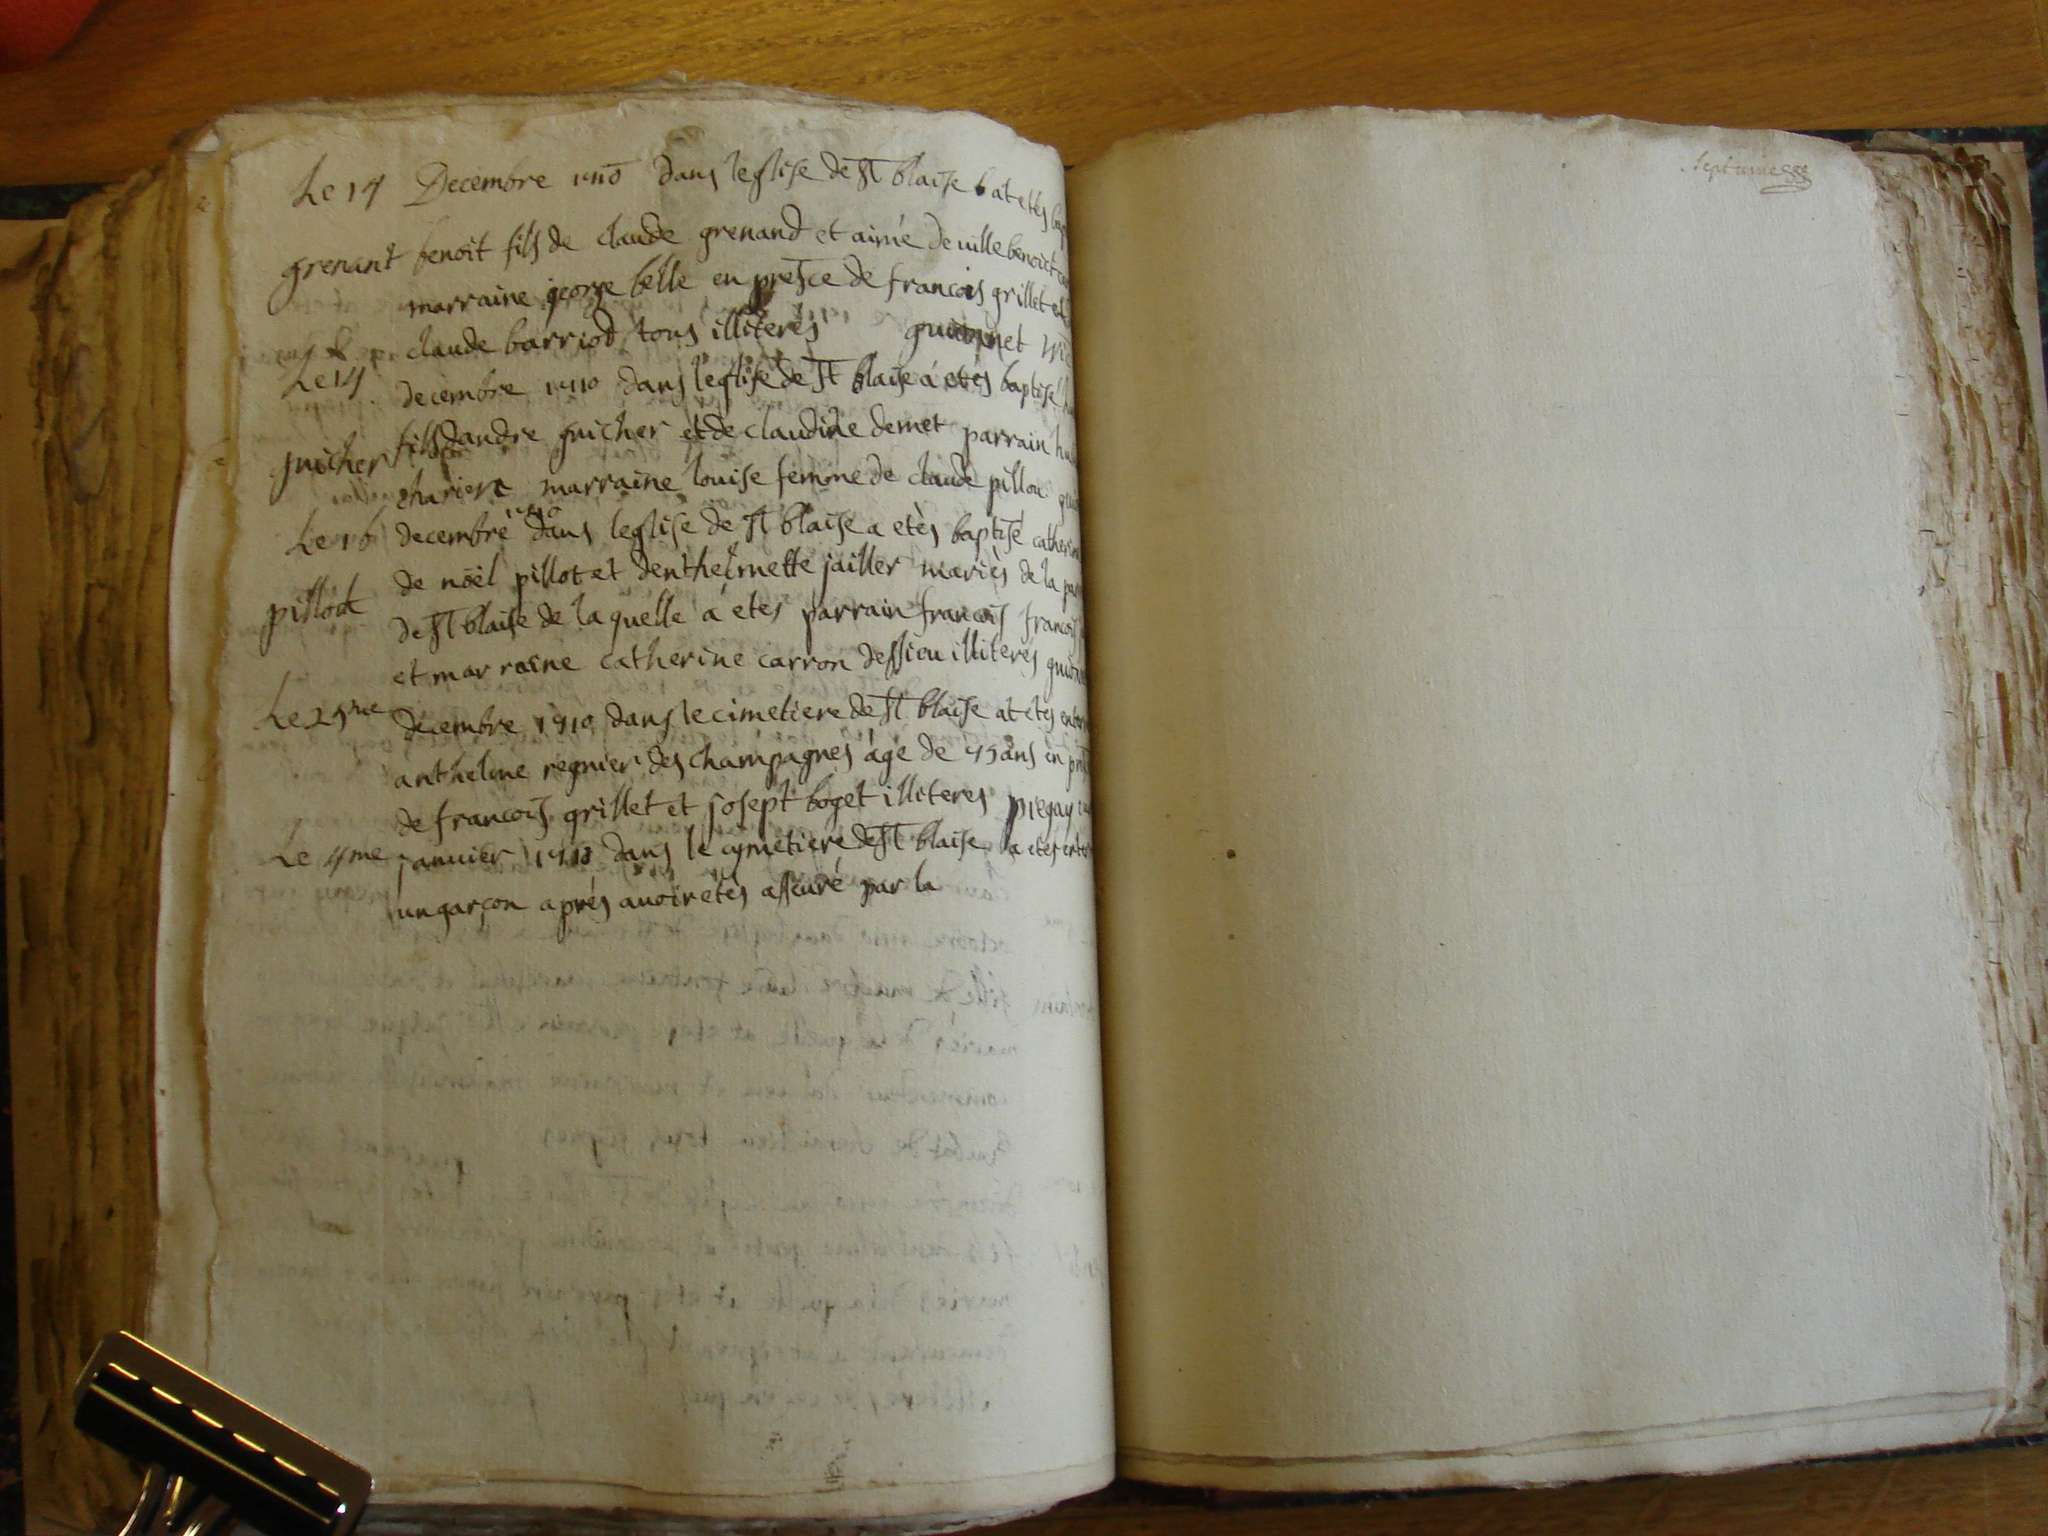 Le 14 Decembre 1710 dans leglise de St blaise b at etés
grenant benoit fils de claude grenand et aimé deuille benoict
marraine george belle en presce de francois grillet et
claude barriod tous illiterés
Le 14 decembre 1710 dans l'eglise de St blaise á etés baptisé
guicher fils dandre guicher et de claudine demet parrain
chariere marraine louise femme de claude pillou
Le 16 decembre 1710 dans leglise de St blaise a etès baptisé catherine
de nöel pillot et denthelmette jailler mariès de la
pillout de St blaise de la quelle á etes parrain francois francois
et marraine catherine carron dessieu illiterés
Le 25me decembre 1710 dans le cimetiere de St blaise at etes
anthelme regnier des champagnes áge de 45 ans en
de francois grillet et josept boget illiteres
Le 4me janvier dans le cymetiere de St blaise a etes
un garçon aprés auoir etès asseuré par la